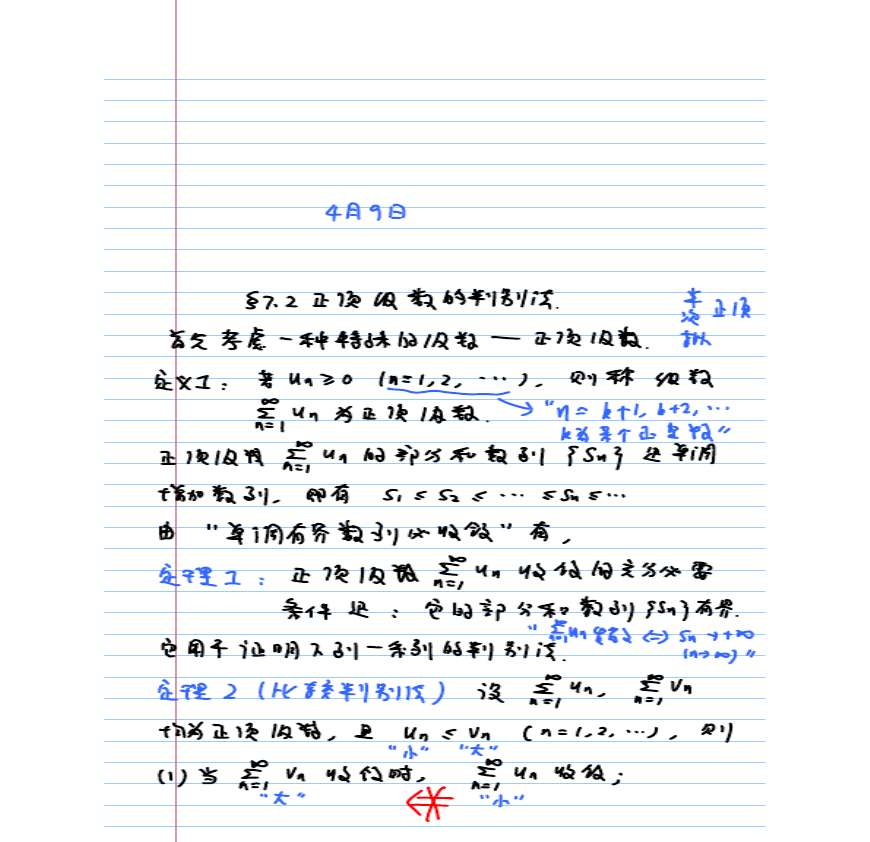 4月9日
§7.2 正项级数的判别法.
首先考虑一种特殊的级数 — 正项级数.
正项
定义1: 若 uₙ ≥ 0 (n=1,2, ⋯), 则称级数
∑_{n=1}^{∞} uₙ 为正项级数.
"n = k+1, k+2, ⋯
k为某个正整数"
正项级数 ∑_{n=1}^{∞} uₙ 的部分和数列 {Sₙ} 是单调
增加数列, 即有 S₁ ≤ S₂ ≤ ⋯ ≤ Sₙ ≤ ⋯
由 "单调有界数列必收敛" 有,
定理1: 正项级数 ∑_{n=1}^{∞} uₙ 收敛的充分必要
条件是: 它的部分和数列 {Sₙ} 有界.
"∑_{n=1}^{∞} uₙ 发散 ⇔ Sₙ → +∞
(n→∞)"
它用于证明下列一系列的判别法.
定理2 (比较判别法) 设 ∑_{n=1}^{∞} uₙ, ∑_{n=1}^{∞} vₙ
均为正项级数, 且 uₙ ≤ vₙ (n=1,2,⋯), 则
"小" "大"
(1) 当 ∑_{n=1}^{∞} vₙ 收敛时, ∑_{n=1}^{∞} uₙ 收敛;
"大" "小"